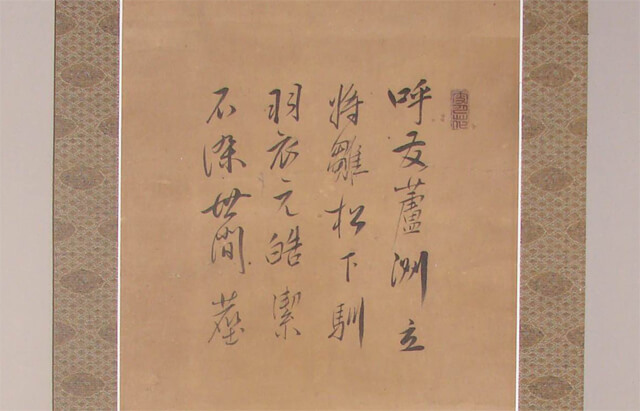 呼友蘆洲立
将雛松下馴
羽衣元皓潔
不染世間塵